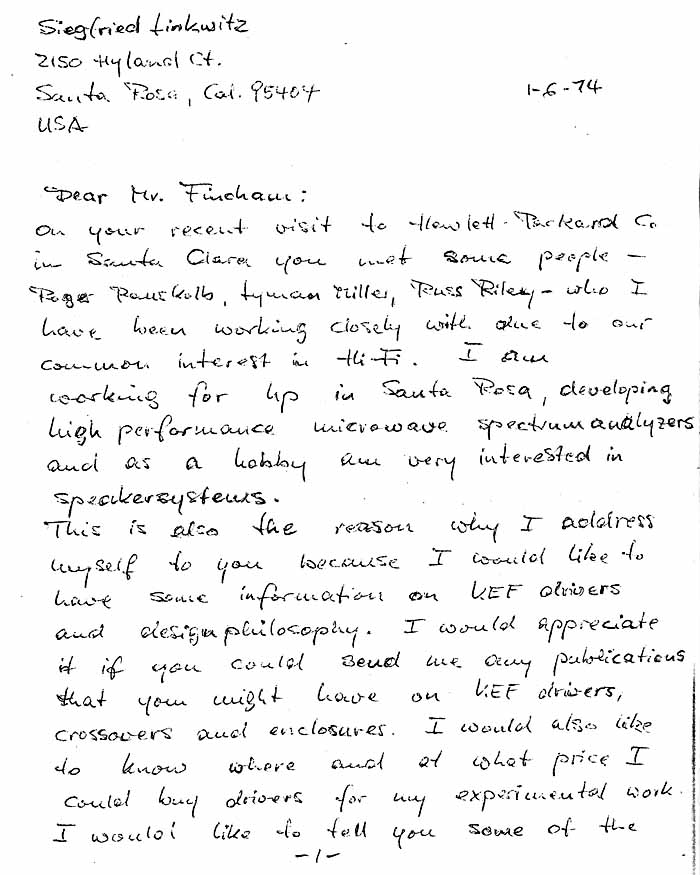 Siegfried Linkwitz
2150 Hyland Ct.
Santa Rosa, Cal. 95404
1-6-74
USA
Dear Mr. Fincham:
On your recent visit to Hewlett-Packard Co
in Santa Clara you met some people –
Roger Pauskolb, Lyman Miller, Russ Riley – who I
have been working closely with due to our
common interest in Hi-Fi. I am
working for hp in Santa Rosa, developing
high performance microwave spectrumanalyzers
and as a hobby am very interested in
speakersystems.
This is also the reason why I address
myself to you because I would like to
have some information on KEF drivers
and designphilosophy. I would appreciate
it if you could send me any publications
that you might have on KEF drivers,
crossovers and enclosures. I would also like
to know where and at what price I
could buy drivers for my experimental work.
I would like to tell you some of the
-1-